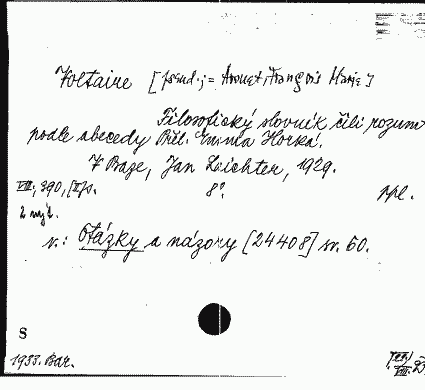 Voltaire [pseud.; = Arouet, François Marie]
Filosofický slovník čili rozum
podle abecedy Přel. Emma Horká.
V Praze, Jan Laichter, 1929.
VIII, 390, [II] s. 8°. ppl.
2 vyd.
v.: Otázky a názory [24408] sv. 60.
S
1933. Bar.